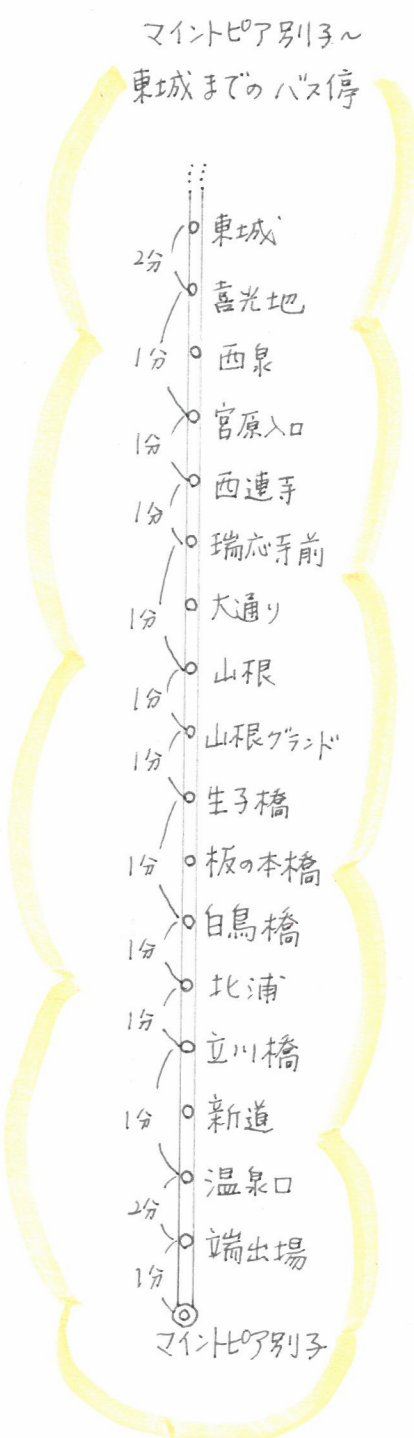 マイントピア別子～
東城までのバス停
東城
2分
喜光地
1分
西泉
宮原入口
1分
西連寺
1分
瑞応寺前
大通り
1分
山根
1分
山根グランド
1分
生子橋
板の本橋
1分
白鳥橋
1分
北浦
1分
立川橋
新道
1分
温泉口
2分
端出場
1分
マイントピア別子